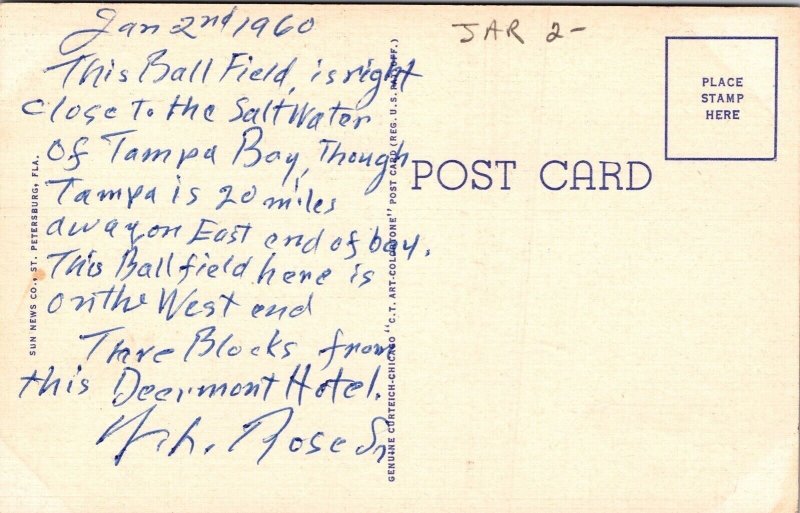 Jan 2nd 1960
This Ball Field, is right
close to the Salt Water
Of Tampa Bay, Though
Tampa is 20 miles
away on East end of bay.
This Ball field here is
on the West end
Three Blocks from
this Deermont Hotel.
Rose Sr
JAR 2-
PLACE
STAMP
HERE
POST CARD
SUN NEWS CO., ST. PETERSBURG, FLA.
GENUINE CURTEICH-CHICAGO "C.T. ART-COLORTONE" POST CARD (REG. U.S. PAT. OFF.)